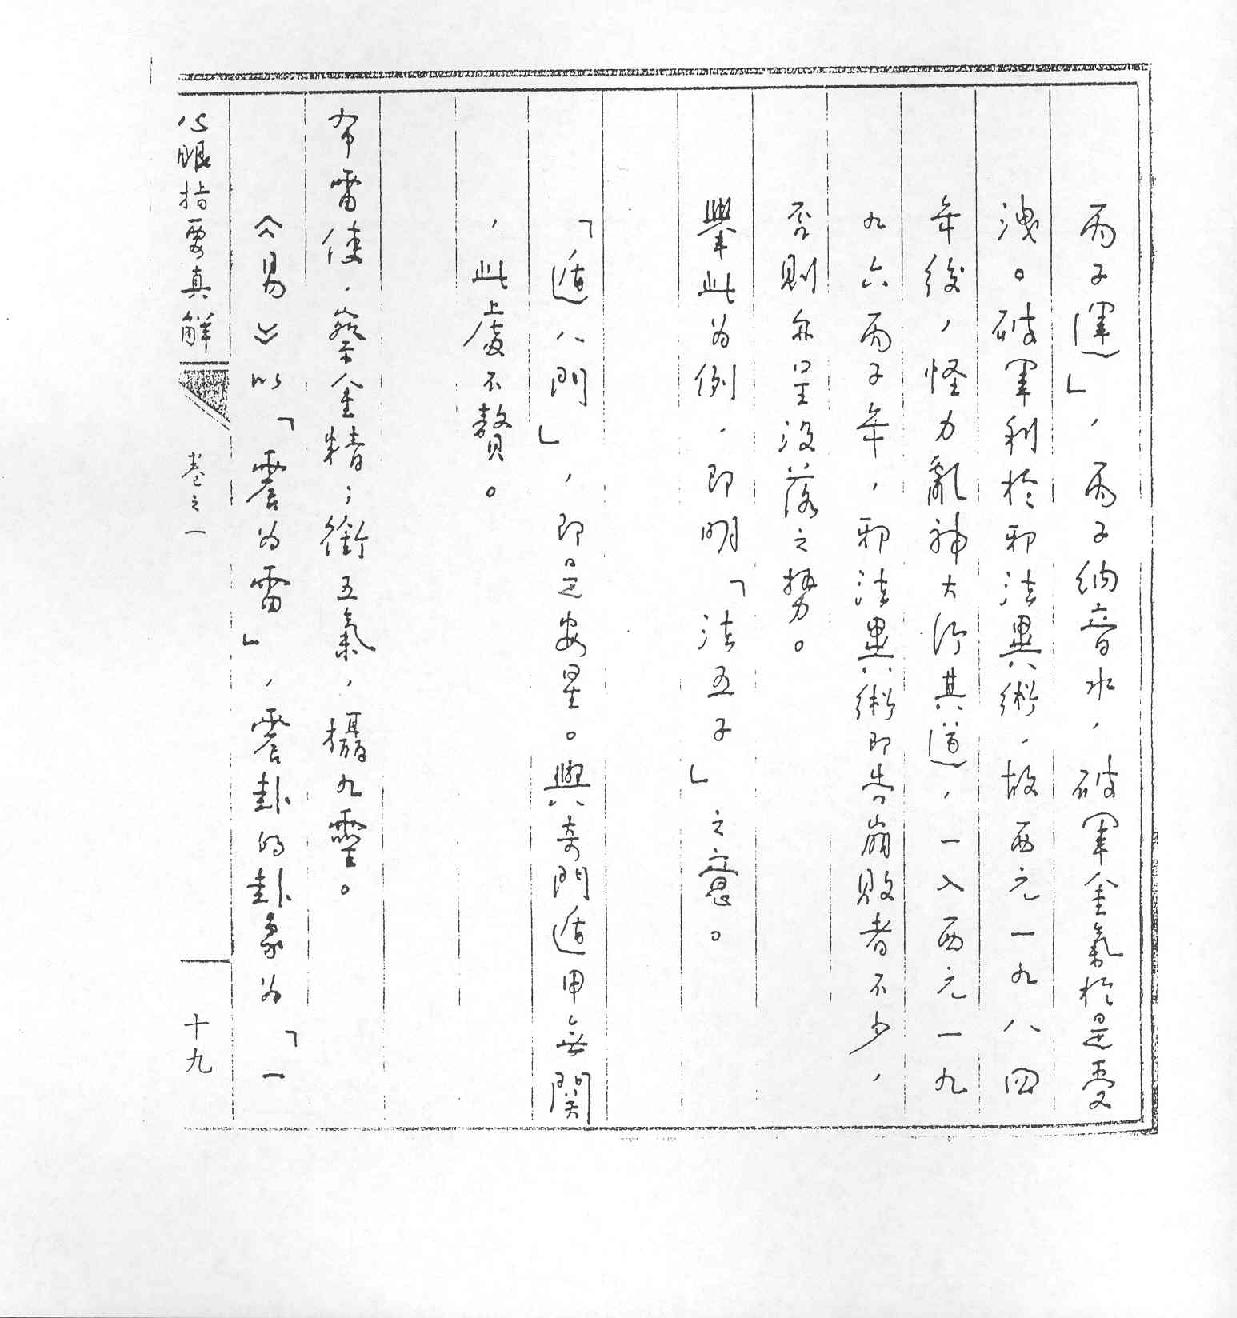 丙子運」，丙子納音水，破軍金氣於是受
洩。破軍利於邪法異術，故西元一九八四
年後，怪力亂神大行其道，一入西元一九
九六丙子年，邪法異術即告崩敗者不少，
否則亦呈沒落之勢。
舉此為例，即明「法五子」之意。
「遁八門」，即是安星。與奇門遁甲無關
，此處不贅。
布雷使，察金精；銜五氣，攝九靈。
《易》以「震為雷」，震卦的卦象為「一
心眼指要真解
卷之一
十九